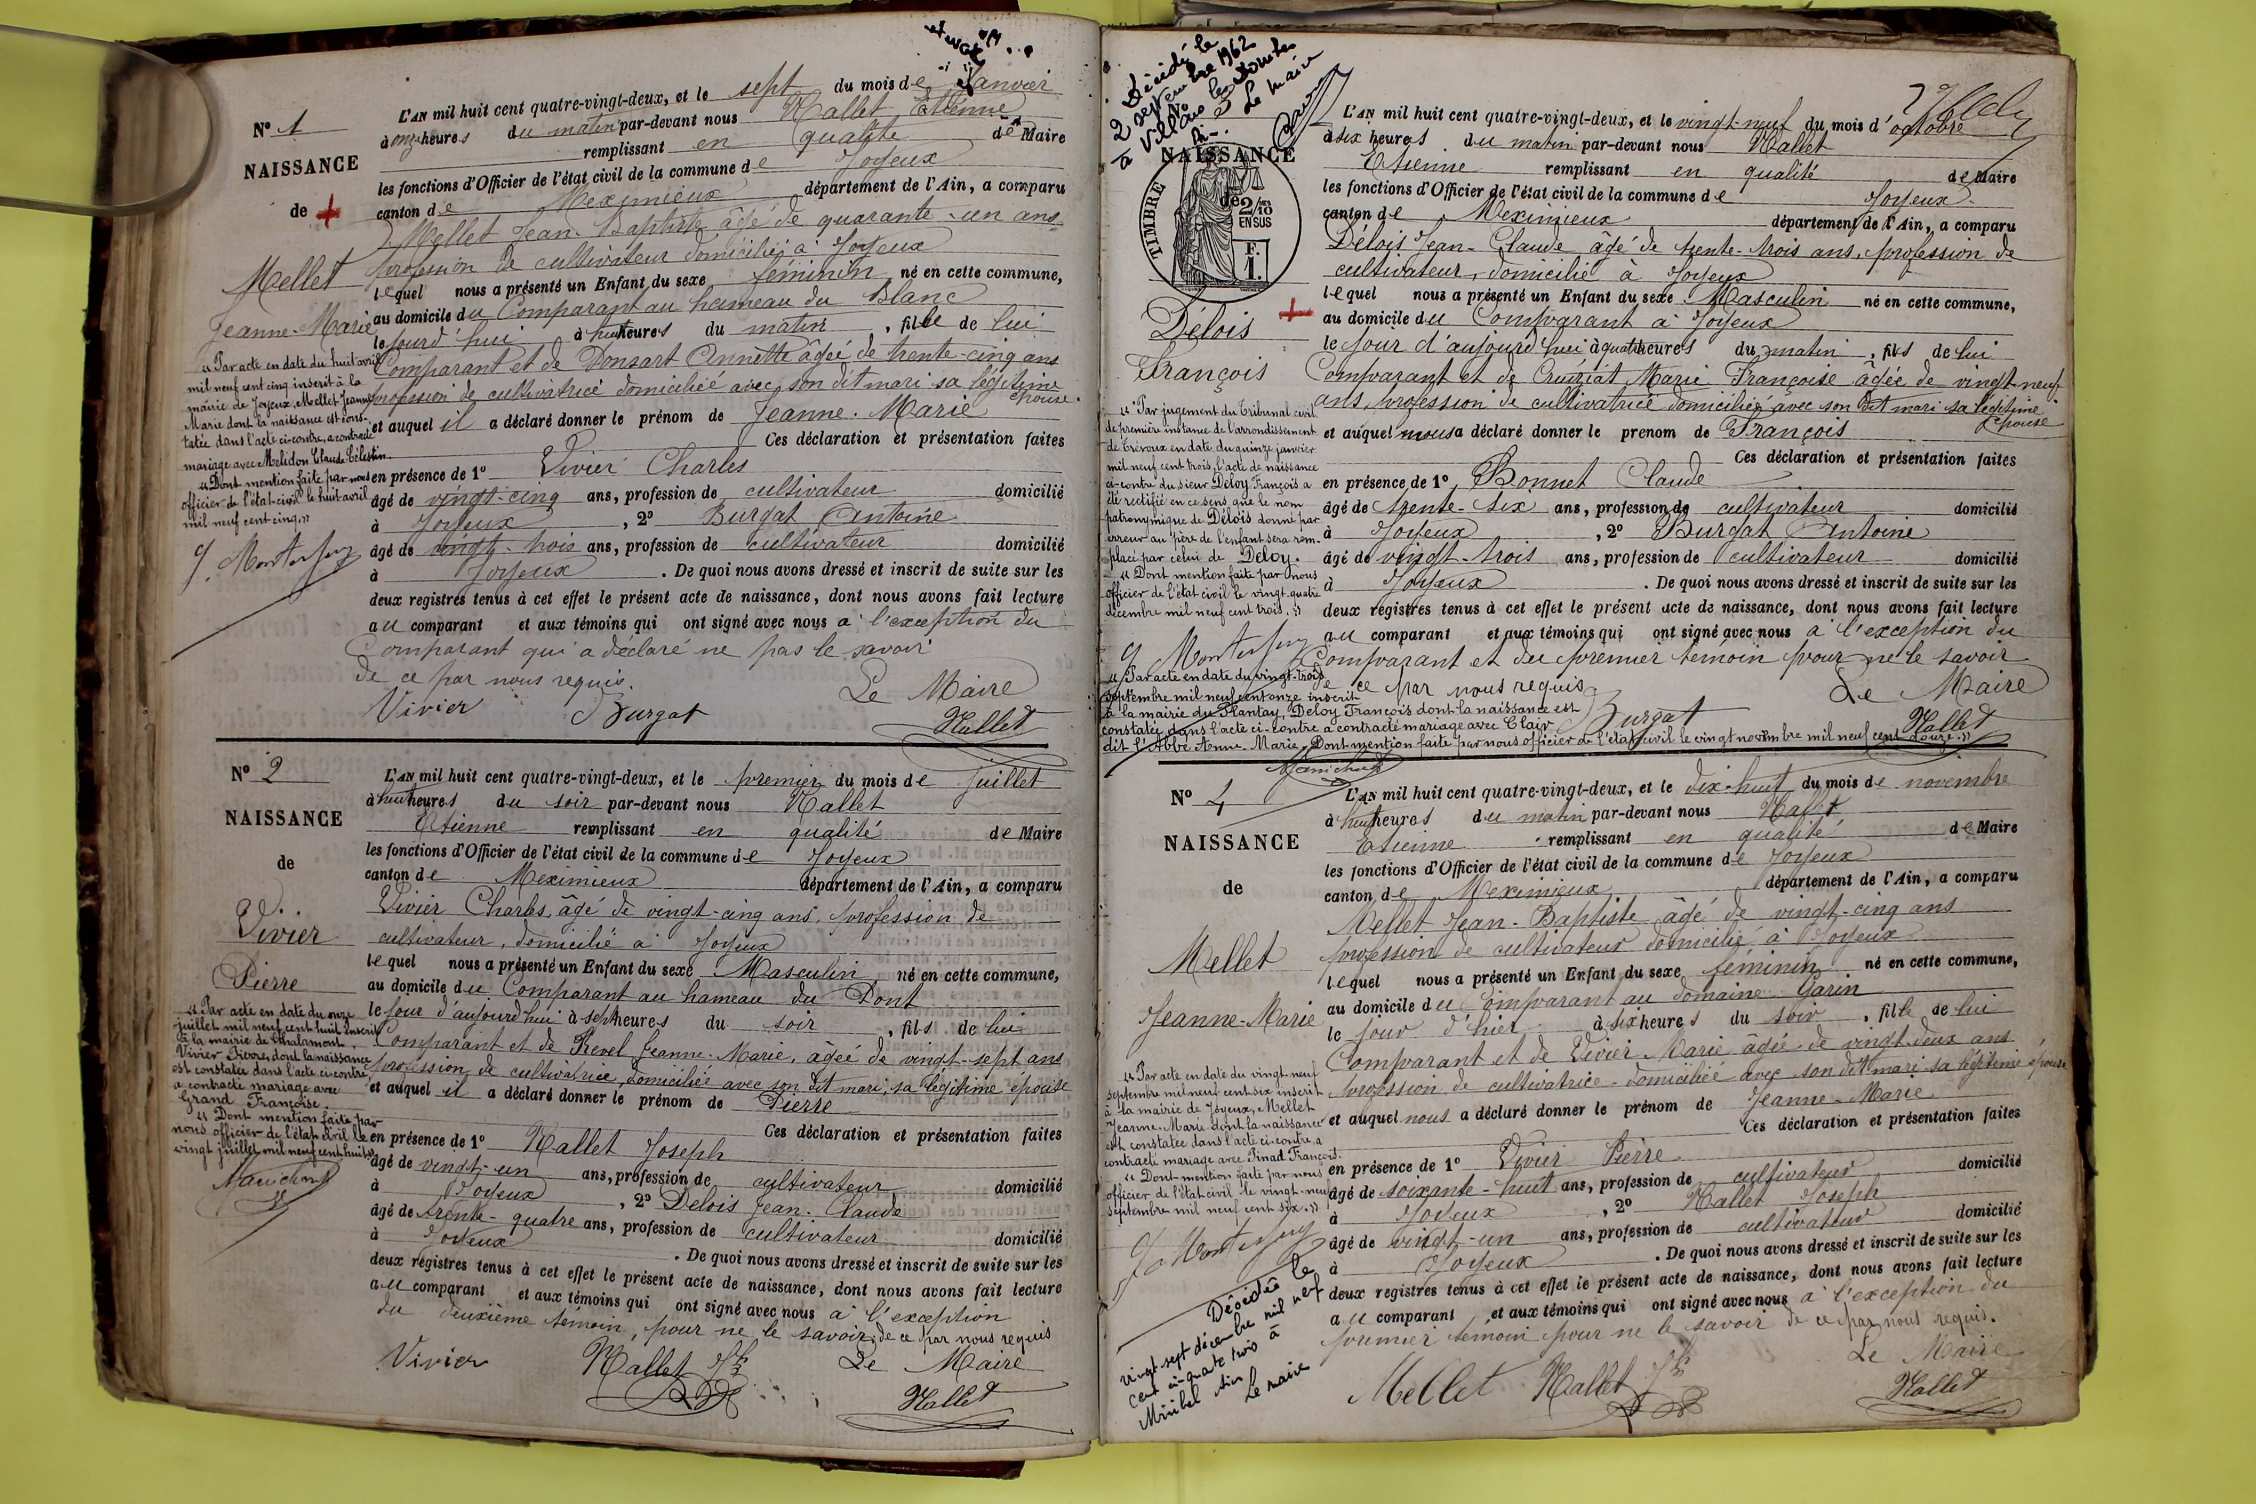 N° 1
NAISSANCE
de
Mellet
Jeanne-Marie
« Par acte en date du huit avril
mil neuf cent cinq inscrit à la
mairie de Joyeux, Mellet Jeanne
Marie dont la naissance est cons-
tatée dans l'acte ci-contre, a contracté
mariage avec Melidon Claude Célestin.
« Dont mention faite par nous
officier de l'état-civil le huit avril
mil neuf cent cinq. »
L'AN mil huit cent quatre-vingt-deux, et le sept du mois de Janvier
à onze heures du matin par-devant nous Nallet Etienne
remplissant en qualité de Maire
les fonctions d'Officier de l'état civil de la commune de Joyeux
canton de Meximieux département de l'Ain, a comparu
Mellet Jean-Baptiste âgé de quarante-un ans
profession de cultivateur domicilié à Joyeux
lequel nous a présenté un Enfant du sexe féminin né en cette commune,
au domicile du Comparant au hameau du Blanc
le jourd'hui à huit heures du matin, fille de lui
Comparant et de Donsart Annette âgée de trente-cinq ans
profession de cultivatrice domiciliée avec son dit mari sa légitime
épouse.
et auquel il a déclaré donner le prénom de Jeanne-Marie
Ces déclaration et présentation faites
en présence de 1° Vivier Charles
âgé de vingt-cinq ans, profession de cultivateur domicilié
à Joyeux, 2° Burgat Antoine
âgé de vingt-trois ans, profession de cultivateur domicilié
à Joyeux. De quoi nous avons dressé et inscrit de suite sur les
deux registres tenus à cet effet le présent acte de naissance, dont nous avons fait lecture
au comparant et aux témoins qui ont signé avec nous à l'exception du
Comparant qui a déclaré ne pas le savoir
de ce par nous requis.
Vivier Burgat Le Maire
Nallet
N° 2
NAISSANCE
de
Vivier
Pierre
« Par acte en date du onze
juillet mil neuf cent huit inscrit
à la mairie de Chalamont,
Vivier Pierre, dont la naissance
est constatée dans l'acte ci-contre
a contracté mariage avec
Grand Françoise.
« Dont mention faite par
nous officier de l'état civil le
vingt juillet mil neuf cent huit »
L'AN mil huit cent quatre-vingt-deux, et le premier du mois de Juillet
à huit heures du soir par-devant nous Nallet
Etienne remplissant en qualité de Maire
les fonctions d'Officier de l'état civil de la commune de Joyeux
canton de Meximieux département de l'Ain, a comparu
Vivier Charles, âgé de vingt-cinq ans, profession de
cultivateur, domicilié à Joyeux
lequel nous a présenté un Enfant du sexe Masculin né en cette commune,
au domicile du Comparant au hameau du Pont
le jour d'aujourd'hui à sept heures du soir, fils de lui
Comparant et de Prevel Jeanne-Marie, âgée de vingt-sept ans
profession de cultivatrice, domiciliée avec son dit mari, sa légitime épouse
et auquel il a déclaré donner le prénom de Pierre
Ces déclaration et présentation faites
en présence de 1° Nallet Joseph
âgé de vingt-un ans, profession de cultivateur domicilié
à Joyeux, 2° Delois Jean-Claude
âgé de trente-quatre ans, profession de cultivateur domicilié
à Joyeux. De quoi nous avons dressé et inscrit de suite sur les
deux registres tenus à cet effet le présent acte de naissance, dont nous avons fait lecture
au comparant et aux témoins qui ont signé avec nous à l'exception
du deuxième témoin, pour ne le savoir, de ce par nous requis
Vivier Nallet Jh Le Maire
Nallet
Décédé le
2 septembre 1962
à Villars les Dombes
Le Maire
N°
NAISSANCE
de
TIMBRE
2/10
EN SUS
F.
1.
Délois
François
« Par jugement du Tribunal civil
de première instance de l'arrondissement
de Trévoux en date du quinze janvier
mil neuf cent trois, l'acte de naissance
ci-contre du sieur Deloy François a
été rectifié en ce sens que le nom
patronymique de Délois donné par
erreur au père de l'enfant sera rem-
placé par celui de Deloy.
« Dont mention faite par nous
officier de l'état civil le vingt-quatre
décembre mil neuf cent trois. »
« Par acte en date du vingt-trois
septembre mil neuf cent onze inscrit
à la mairie du Plantay, Deloy François dont la naissance est
constatée dans l'acte ci-contre a contracté mariage avec Clair
dit l'Abbé Anne-Marie. Dont mention faite par nous officier de l'état civil le vingt novembre mil neuf cent douze. »
L'AN mil huit cent quatre-vingt-deux, et le vingt-neuf du mois d'octobre
à six heures du matin par-devant nous Nallet
Etienne remplissant en qualité de Maire
les fonctions d'Officier de l'état civil de la commune de Joyeux
canton de Meximieux département de l'Ain, a comparu
Délois Jean-Claude âgé de trente-trois ans, profession de
cultivateur, domicilié à Joyeux
lequel nous a présenté un Enfant du sexe Masculin né en cette commune,
au domicile du Comparant à Joyeux
le jour d'aujourd'hui à quatre heures du matin, fils de lui
Comparant et de Cruiziat Marie Françoise âgée de vingt-neuf
ans, profession de cultivatrice domiciliée avec son dit mari sa légitime
épouse
et auquel nous a déclaré donner le prenom de François
Ces déclaration et présentation faites
en présence de 1° Bonnet Claude
âgé de trente-six ans, profession de cultivateur domicilié
à Joyeux, 2° Burgat Antoine
âgé de vingt-trois ans, profession de cultivateur domicilié
à Joyeux. De quoi nous avons dressé et inscrit de suite sur les
deux registres tenus à cet effet le présent acte de naissance, dont nous avons fait lecture
au comparant et aux témoins qui ont signé avec nous à l'exception du
Comparant et du premier témoin pour ne le savoir
de ce par nous requis
Burgat Le Maire
Nallet
N° 4
NAISSANCE
de
Mellet
Jeanne-Marie
« Par acte en date du vingt-neuf
septembre mil neuf cent six inscrit
à la mairie de Joyeux, Mellet
Jeanne-Marie dont la naissance
est constatée dans l'acte ci-contre, a
contracté mariage avec Pinad François.
« Dont mention faite par nous
officier de l'état civil le vingt-neuf
septembre mil neuf cent six. »
Décédée le
vingt sept décembre mil neuf
cent cinquante trois à
Miribel Ain
Le maire
L'AN mil huit cent quatre-vingt-deux, et le dix-huit du mois de novembre
à huit heures du matin par-devant nous Nallet
Etienne remplissant en qualité de Maire
les fonctions d'Officier de l'état civil de la commune de Joyeux
canton de Meximieux département de l'Ain, a comparu
Mellet Jean-Baptiste âgé de vingt-cinq ans
profession de cultivateur domicilié à Joyeux
lequel nous a présenté un Enfant du sexe féminin né en cette commune,
au domicile du Comparant au domaine Garin
le jour d'hier à six heures du soir, fille de lui
Comparant et de Vivier Marie âgée de vingt-deux ans
profession de cultivatrice domiciliée avec son dit mari sa légitime épouse
et auquel nous a déclaré donner le prénom de Jeanne-Marie
Ces déclaration et présentation faites
en présence de 1° Vivier Pierre
âgé de soixante-huit ans, profession de cultivateur domicilié
à Joyeux, 2° Nallet Joseph
âgé de vingt-un ans, profession de cultivateur domicilié
à Joyeux. De quoi nous avons dressé et inscrit de suite sur les
deux registres tenus à cet effet le présent acte de naissance, dont nous avons fait lecture
au comparant et aux témoins qui ont signé avec nous à l'exception du
premier témoin pour ne le savoir de ce par nous requis.
Le Maire
Mellet Nallet Jh Nallet